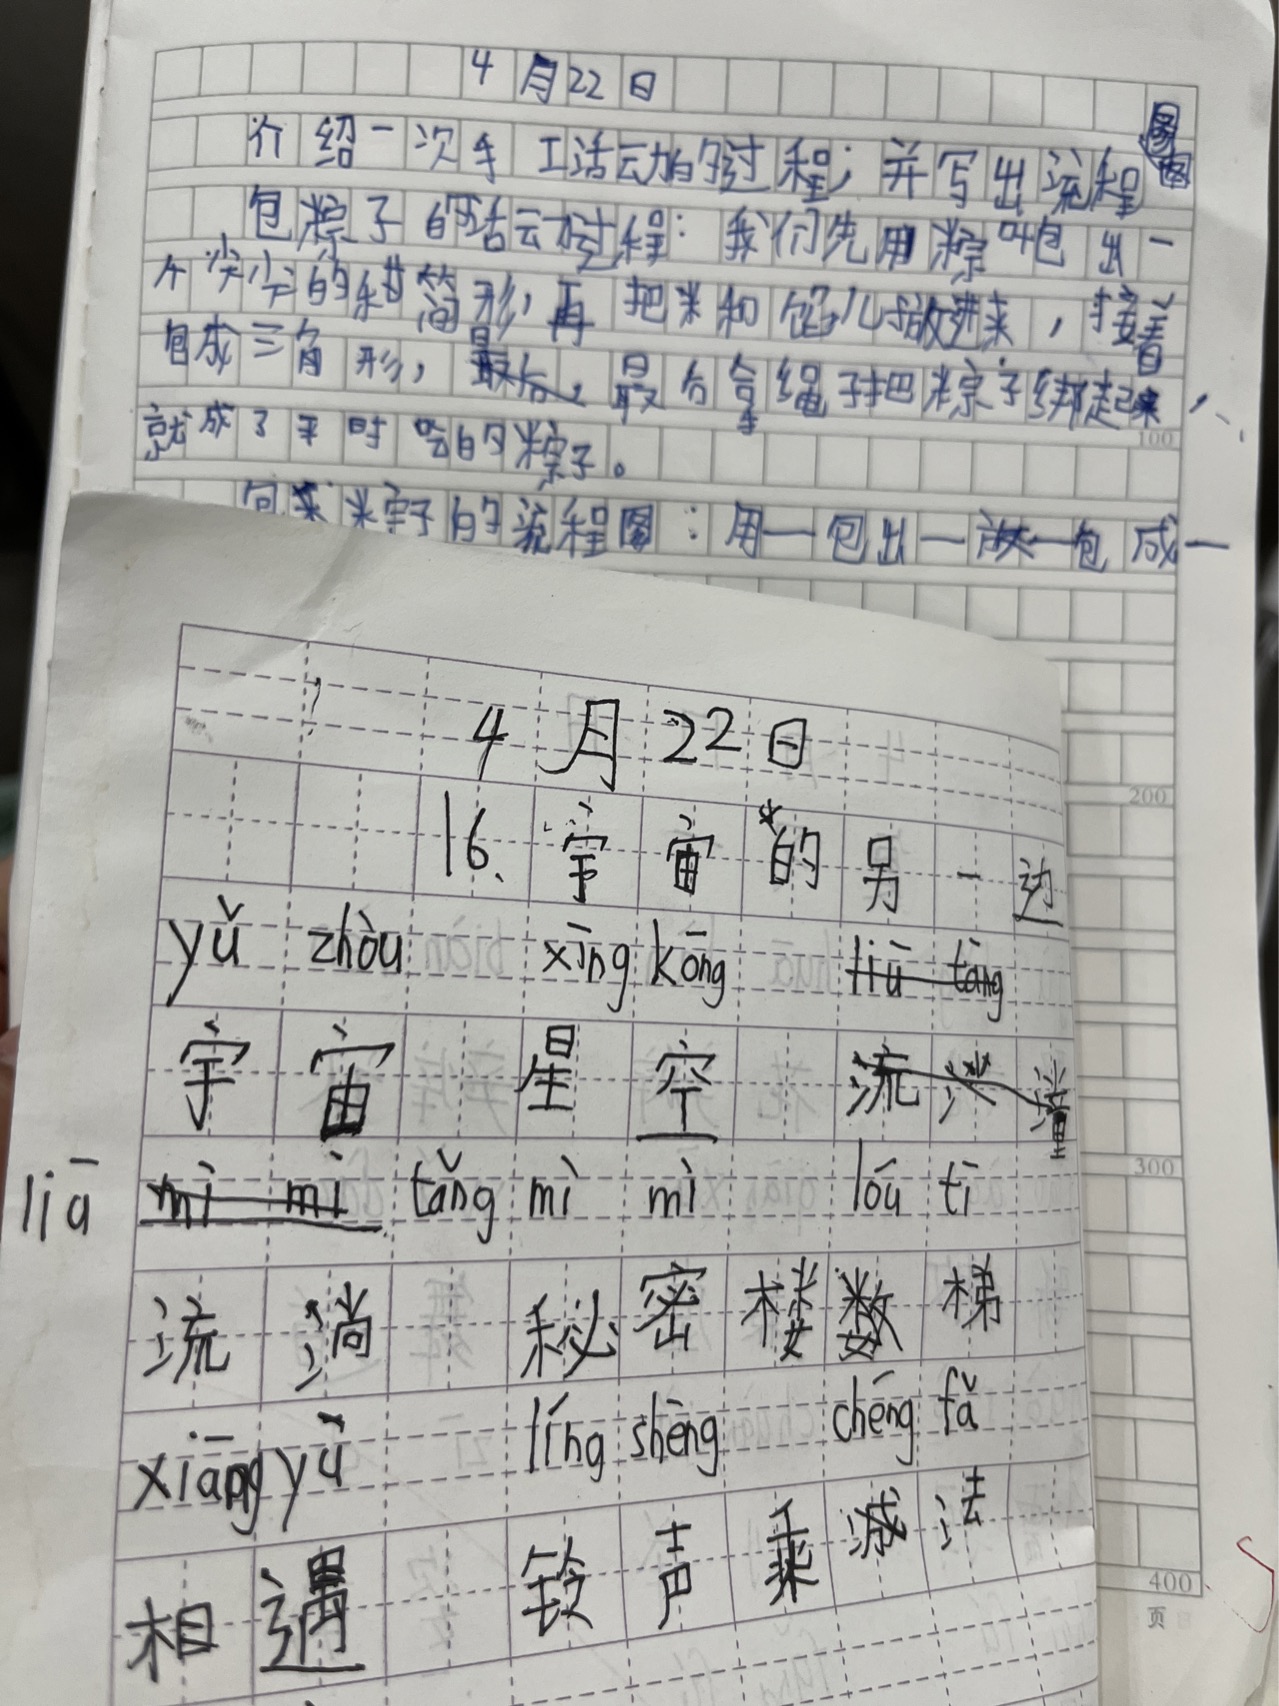 4月22日
介绍一次手工活动的过程；并写出流程图
包粽子的活动过程：我们先用粽叶包出一
个尖尖的 筒形，再把米和馅儿放进来，接着
包成三角形，最后，最后拿绳子把粽子绑起来，
就成了平时吃的粽子。
包 粽子的流程图：用一包出一放一包成一
100
4月22日
16、宇宙的另一边
yǔ zhòu xīng kōng liū tǎng
宇宙 星空 流淌
liū mì mì tǎng mì mì lóu tī
流淌 秘密 楼数梯
xiāng yù líng shēng chéng fǎ
相遇 铃声 乘减法
200
300
400
页